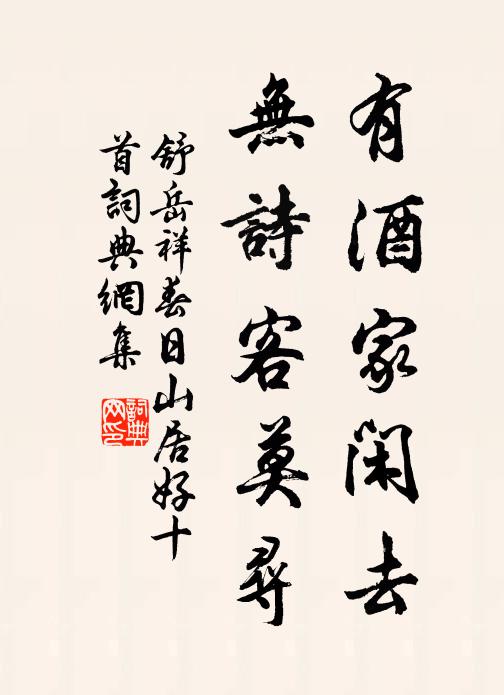 有酒家閑去
無詩客莫尋
舒岳祥春日山居好十
首詞典網集
詞典
網印